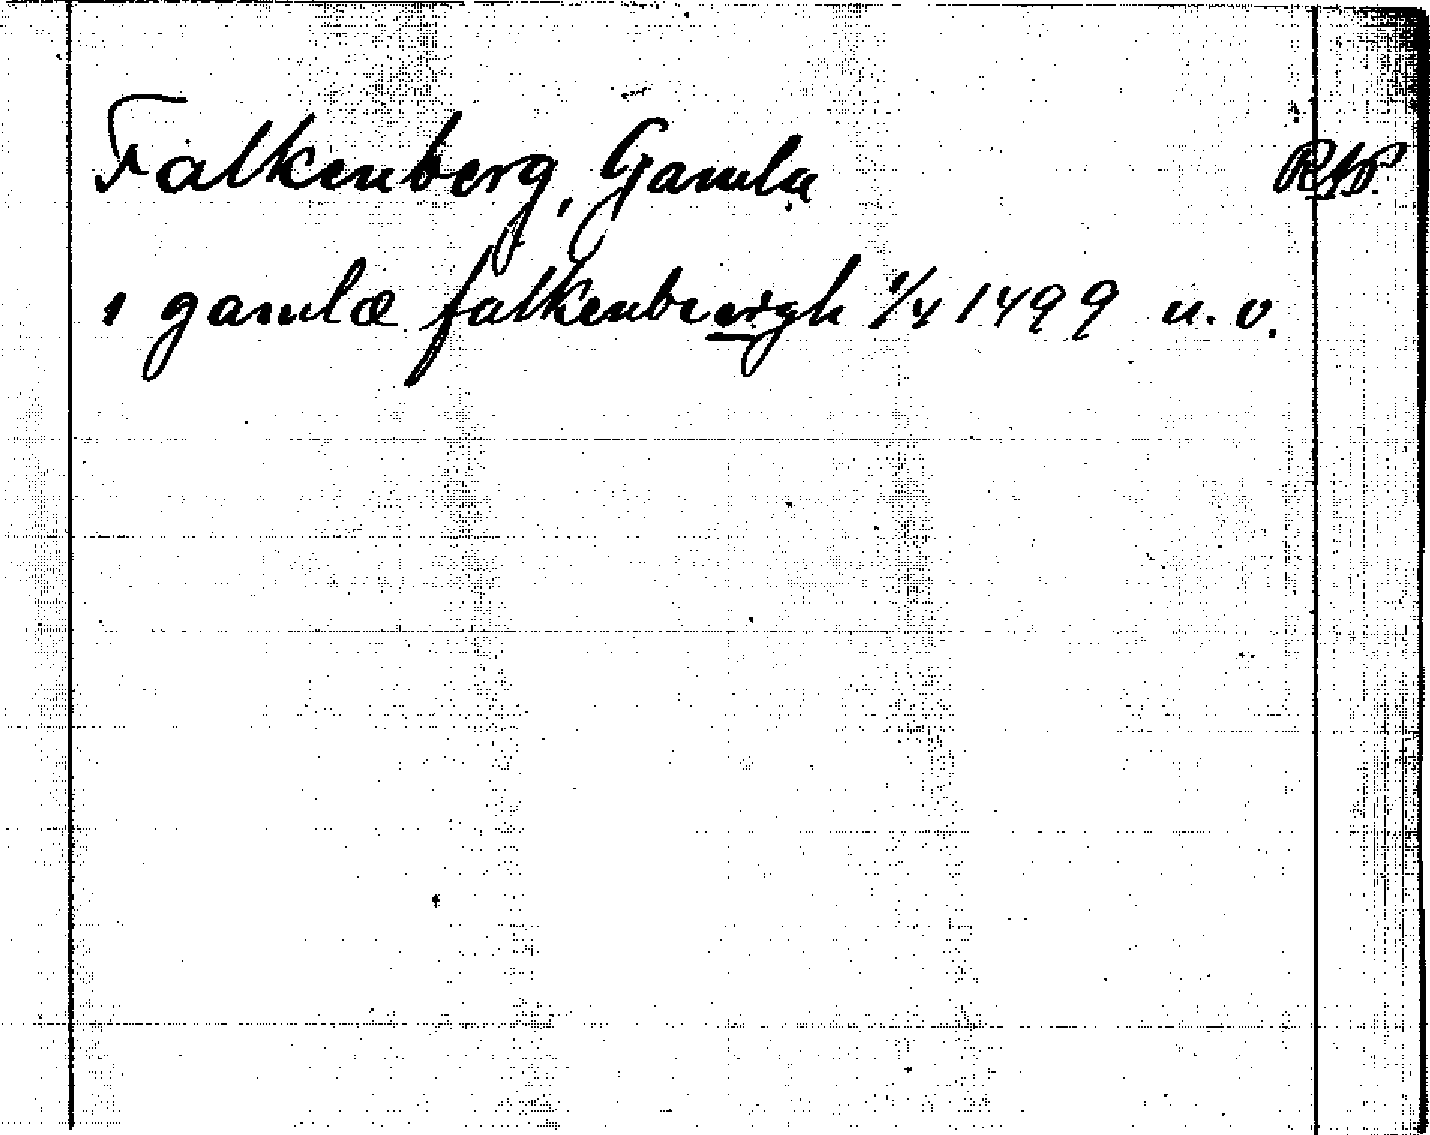 Falkenberg, Gamla
i gamlæ falkenbergh 1/4 1499 u. o.